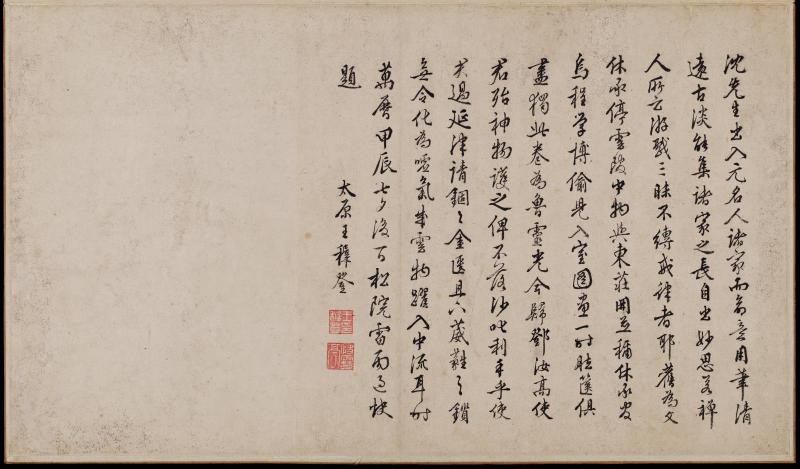 沈先生出入元名人諸家而命意用筆清
遠古淡能集諸家之長自出妙思若禪
人所云游戲三昧不縛戒律者耶舊為文
休承停雲閣中物與東莊冊並稱休承官
烏程學博偷兒入室圖畫一時胠篋俱
盡獨此卷為魯靈光今歸鄧汝高使
君殆神物護之俾不落沙叱利手乎使
君過延津請錮之金匱且六葳蕤之鎖
無令化為噓氣乘雲物躍入中流耳時
萬曆甲辰七夕後百松院雷雨已快
題
太原王穉登